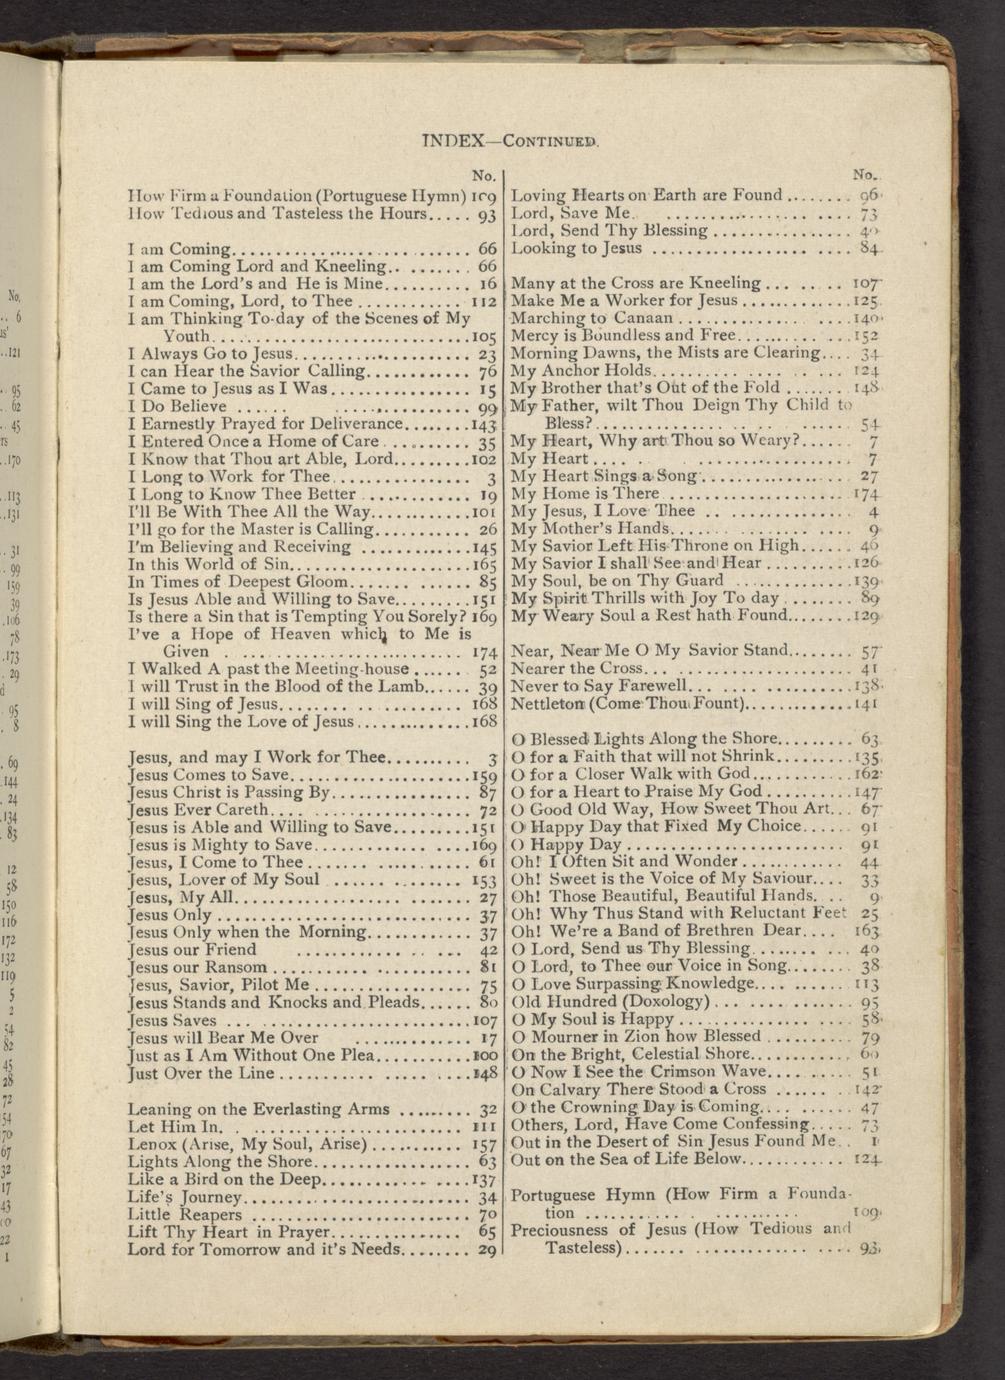 INDEX—CONTINUED.
No.
How Firm a Foundation (Portuguese Hymn) 109
How Tedious and Tasteless the Hours..... 93
I am Coming.............................. 66
I am Coming Lord and Kneeling.. ........ 66
I am the Lord's and He is Mine.......... 16
I am Coming, Lord, to Thee ............ 112
I am Thinking To-day of the Scenes of My
Youth..............................105
I Always Go to Jesus...................... 23
I can Hear the Savior Calling............ 76
I Came to Jesus as I Was................ 15
I Do Believe ...... .............. 99
I Earnestly Prayed for Deliverance........143
I Entered Once a Home of Care .......... 35
I Know that Thou art Able, Lord.........102
I Long to Work for Thee................ 3
I Long to Know Thee Better ............ 19
I'll Be With Thee All the Way............101
I'll go for the Master is Calling............ 26
I'm Believing and Receiving ............145
In this World of Sin......................165
In Times of Deepest Gloom....... ...... 85
Is Jesus Able and Willing to Save.........151
Is there a Sin that is Tempting You Sorely? 169
I've a Hope of Heaven which to Me is
Given . .......................... 174
I Walked A past the Meeting-house ...... 52
I will Trust in the Blood of the Lamb...... 39
I will Sing of Jesus........ .............. 168
I will Sing the Love of Jesus..............168
Jesus, and may I Work for Thee.......... 3
Jesus Comes to Save......................159
Jesus Christ is Passing By................ 87
Jesus Ever Careth.... .................. 72
Jesus is Able and Willing to Save.........151
Jesus is Mighty to Save..................169
Jesus, I Come to Thee.................... 61
Jesus, Lover of My Soul ...... ......... 153
Jesus, My All............................ 27
Jesus Only .............................. 37
Jesus Only when the Morning............ 37
Jesus our Friend ............ .. ... 42
Jesus our Ransom ...................... 81
Jesus, Savior, Pilot Me .................. 75
Jesus Stands and Knocks and Pleads...... 80
Jesus Saves ... ..........................107
Jesus will Bear Me Over .............. 17
Just as I Am Without One Plea............100
Just Over the Line ............ ..... ....148
Leaning on the Everlasting Arms ......... 32
Let Him In. . ........................ 111
Lenox (Arise, My Soul, Arise) ........... 157
Lights Along the Shore.................. 63
Like a Bird on the Deep............ ......137
Life's Journey............................ 34
Little Reapers .......................... 70
Lift Thy Heart in Prayer................ 65
Lord for Tomorrow and it's Needs........ 29
No.
Loving Hearts on Earth are Found ........ 96
Lord, Save Me. ................ .... 73
Lord, Send Thy Blessing ................ 40
Looking to Jesus .................. .... 84
Many at the Cross are Kneeling ... ..... 107
Make Me a Worker for Jesus .............125
Marching to Canaan .............. ....140
Mercy is Boundless and Free.......... ...152
Morning Dawns, the Mists are Clearing.... 34
My Anchor Holds......... .... . ... 124
My Brother that's Out of the Fold ....... 148
My Father, wilt Thou Deign Thy Child to
Bless?.................. .. . .... 54
My Heart, Why art Thou so Weary?...... 7
My Heart .... . .................. 7
My Heart Sings a Song.................. 27
My Home is There .....................174
My Jesus, I Love Thee .. .............. 4
My Mother's Hands...................... 9
My Savior Left His Throne on High...... 46
My Savior I shall See and Hear ..........126
My Soul, be on Thy Guard .............139
My Spirit Thrills with Joy To day ........ 89
My Weary Soul a Rest hath Found........129
Near, Near Me O My Savior Stand........ 57
Nearer the Cross........................ 41
Never to Say Farewell... ... ...........138
Nettleton (Come Thou Fount).............141
O Blessed Lights Along the Shore......... 63
O for a Faith that will not Shrink.........135
O for a Closer Walk with God............162
O for a Heart to Praise My God ..........147
O Good Old Way, How Sweet Thou Art... 67
O Happy Day that Fixed My Choice...... 91
O Happy Day .......................... 91
Oh! I Often Sit and Wonder ............ 44
Oh! Sweet is the Voice of My Saviour.... 33
Oh! Those Beautiful, Beautiful Hands. .. 9
Oh! Why Thus Stand with Reluctant Feet 25
Oh! We're a Band of Brethren Dear.... 163
O Lord, Send us Thy Blessing......... ... 40
O Lord, to Thee our Voice in Song........ 38
O Love Surpassing Knowledge.... ........113
Old Hundred (Doxology) ... ............ 95
O My Soul is Happy .............. .... 58
O Mourner in Zion how Blessed .......... 79
On the Bright, Celestial Shore............ 60
O Now I See the Crimson Wave.......... 51
On Calvary There Stood a Cross ...... ..142
O the Crowning Day is Coming.... ...... 47
Others, Lord, Have Come Confessing..... 73
Out in the Desert of Sin Jesus Found Me.. 1
Out on the Sea of Life Below.............124
Portuguese Hymn (How Firm a Founda-
tion ........... . ......... 109
Preciousness of Jesus (How Tedious and
Tasteless)....... ............. .... 93
No.
.. 6
us'
..121
95
62
45
rs
..170
..113
..131
31
99
159
39
.106
78
.173
29
d
95
8
69
144
24
134
83
12
58
150
116
172
132
119
5
2
54
82
45
28
72
54
70
67
32
17
43
22
1